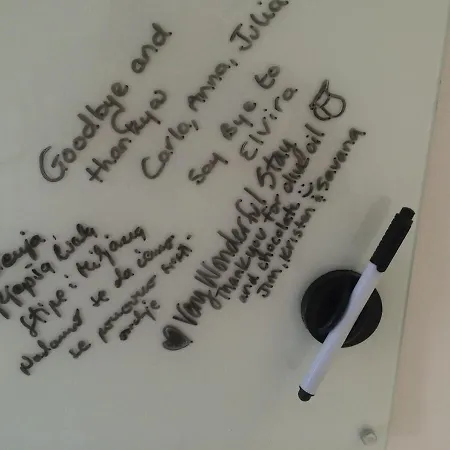 Goodbye and
thankyou
Carla, Anna, Julia
Say Bye to
Elvira
Very Wonderful Stay
thankyou for olive oil
and chocolate :)
Jim, Kristen & Savana
Stipe i
Nadamo se da ćemo
se ponovno sresti
ovdje